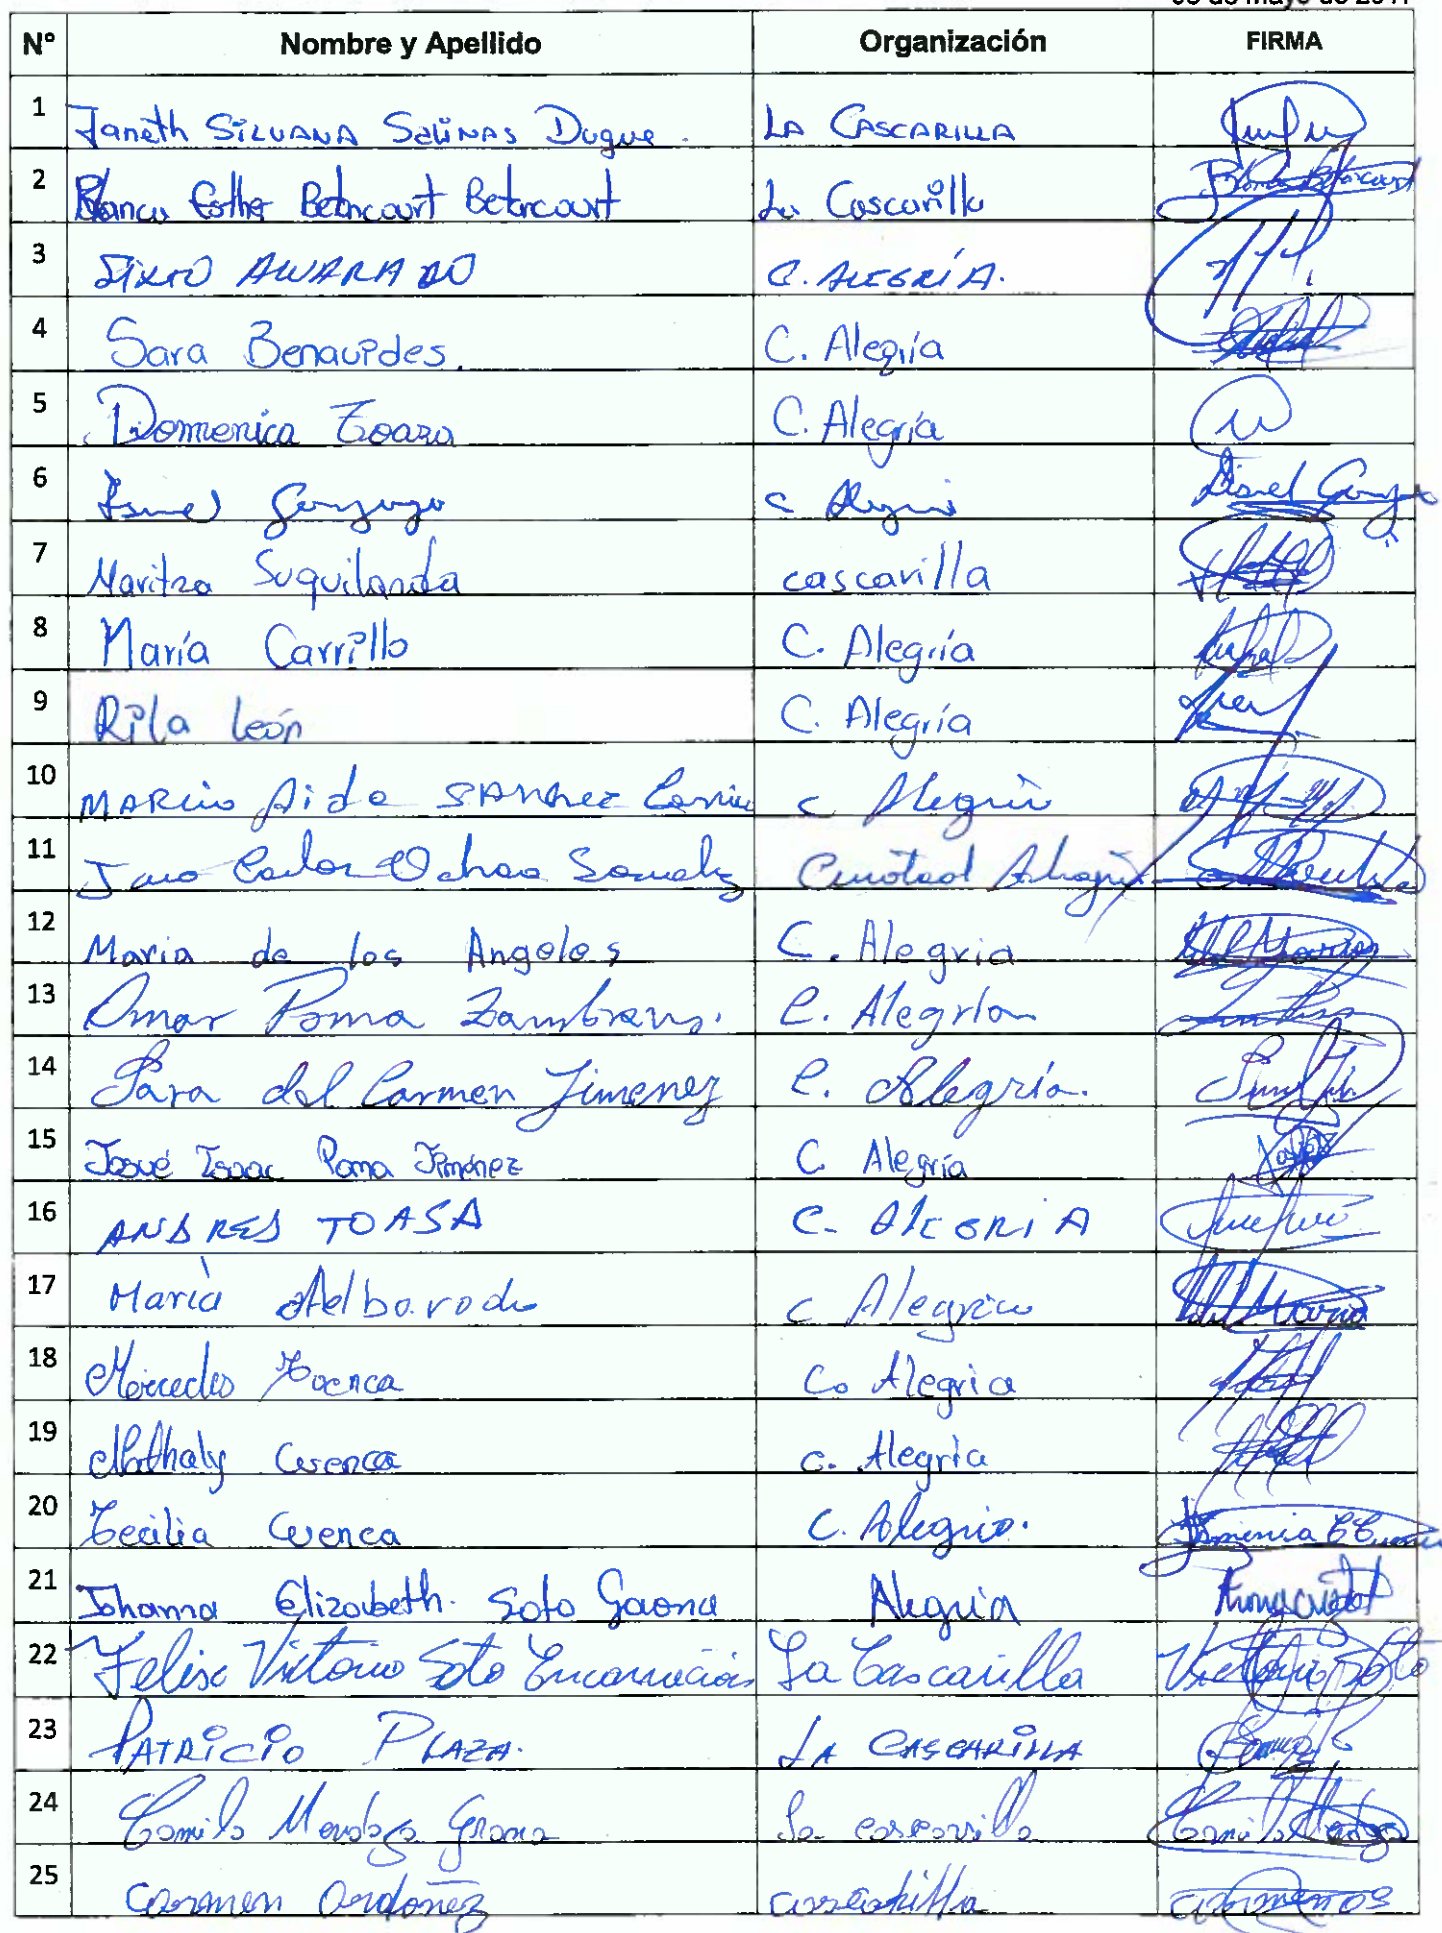 Nº Nombre y Apellido Organización FIRMA
1 Janeth SILVANA SALINAS Duque. LA CASCARILLA
2 Blanca Esther Betancourt Betancourt La Cascarilla Blanca Betancourt
3 SIXTO ALVARADO C. ALEGRÍA.
4 Sara Benavides. C. Alegría
5 Domenica Toaza C. Alegría
6 Ismael Gonzaga C Alegria
7 Maritza Suquilanda cascarilla
8 María Carrillo C. Alegría
9 Rita León C. Alegría
10 MARCIA Aida SANCHEZ C Alegria
11 Carlos Ochoa Ciudad Alegria
12 Maria de los Angeles C. Alegria
13 Omar Poma Zambrano. C. Alegría
14 Sara del Carmen Jimenez C. Alegría.
15 Josué Isaac Poma Jiménez C. Alegría
16 ANDRES TOASA C- ALEGRIA
17 María Albarado C Alegria
18 Mercedes Cuenca C. Alegria
19 Nathaly Cuenca C. Alegria
20 Cecilia Cuenca C. Alegria.
21 Johanna Elizabeth. Soto Gaona Alegria
22 Felix Victorio Soto Encarnación La Cascarilla Victorio Soto
23 PATRICIO PLAZA. LA CASCARILLA
24 Camilo Mendoza Grana La cascarilla Camilo Mendoza
25 Carmen Ordoñez cascarilla